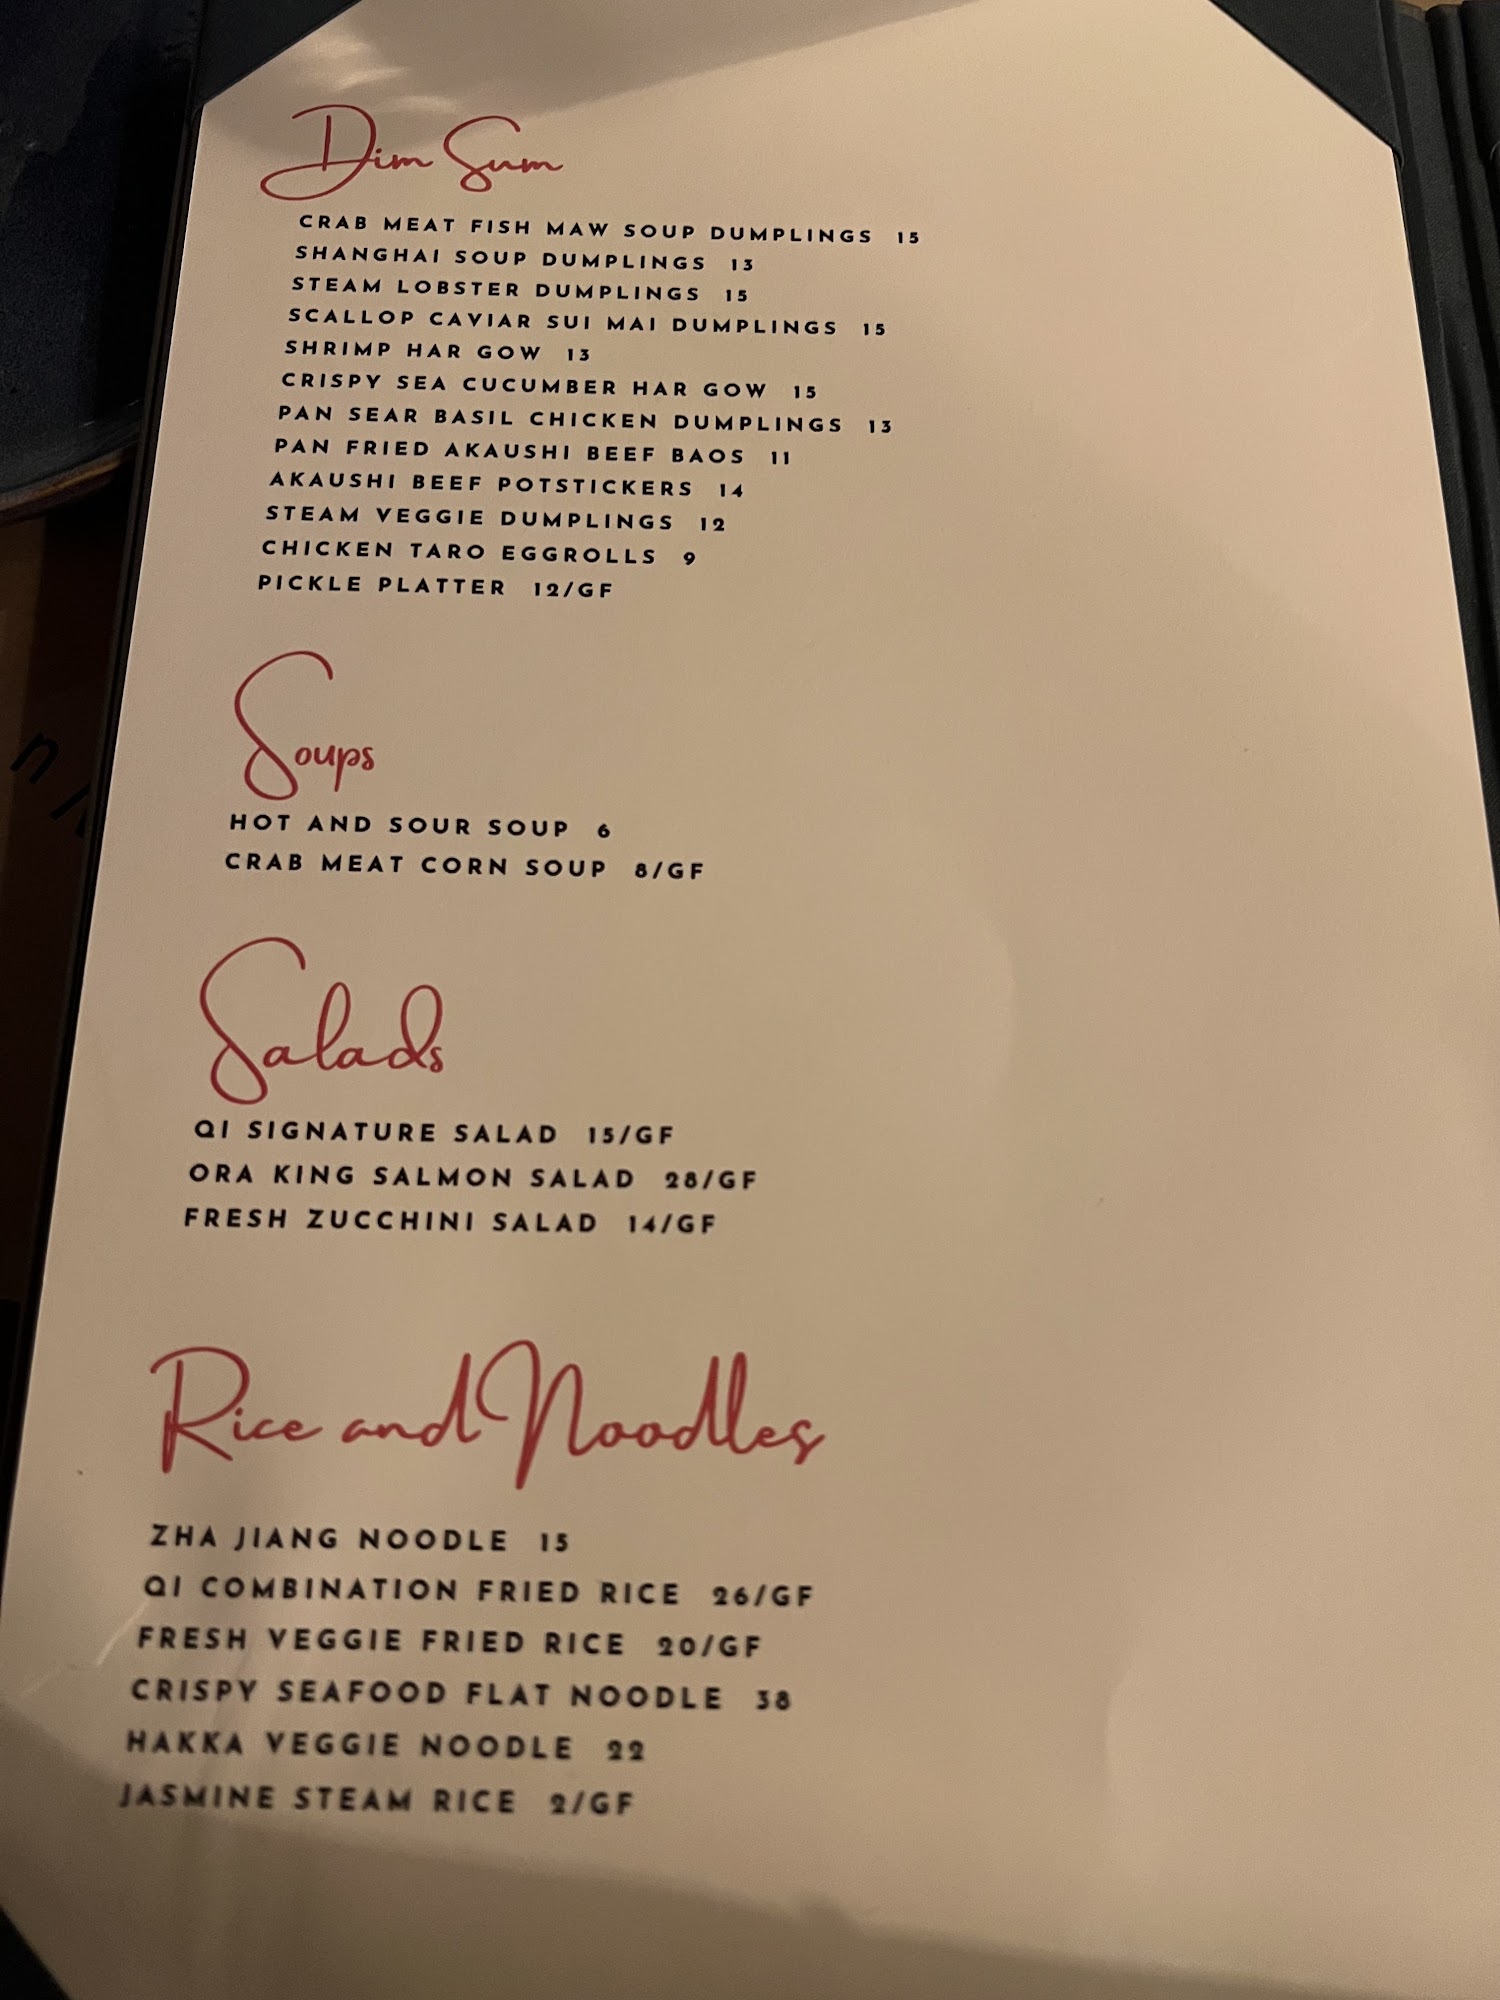 Dim Sum
CRAB MEAT FISH MAW SOUP DUMPLINGS 15
SHANGHAI SOUP DUMPLINGS 13
STEAM LOBSTER DUMPLINGS 15
SCALLOP CAVIAR SUI MAI DUMPLINGS 15
SHRIMP HAR GOW 13
CRISPY SEA CUCUMBER HAR GOW 15
PAN SEAR BASIL CHICKEN DUMPLINGS 13
PAN FRIED AKAUSHI BEEF BAOS 11
AKAUSHI BEEF POTSTICKERS 14
STEAM VEGGIE DUMPLINGS 12
CHICKEN TARO EGGROLLS 9
PICKLE PLATTER 12/GF
Soups
HOT AND SOUR SOUP 6
CRAB MEAT CORN SOUP 8/GF
Salads
QI SIGNATURE SALAD 15/GF
ORA KING SALMON SALAD 28/GF
FRESH ZUCCHINI SALAD 14/GF
Rice and Noodles
ZHA JIANG NOODLE 15
QI COMBINATION FRIED RICE 26/GF
FRESH VEGGIE FRIED RICE 20/GF
CRISPY SEAFOOD FLAT NOODLE 38
HAKKA VEGGIE NOODLE 22
JASMINE STEAM RICE 2/GF